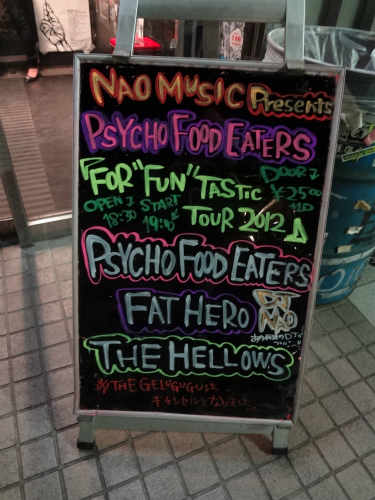 NAO MUSIC Presents
PSYCHO FOOD EATERS
「FOR "FUN" TASTIC
TOUR 2012」
OPEN START
18:30 19:00
DOOR
¥2500
+1D
PSYCHO FOOD EATERS
FAT HERO
DJ NAO
THE HELLOWS
※THE GELUGUGU
キャンセルとなりました。